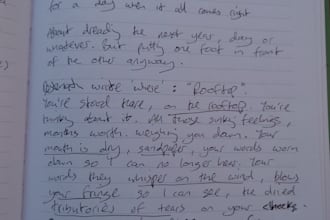 for a day when it all comes right
About dreading the next year, day or
whatever. But putting one foot in front
of the other anyway.
wrote where : "Rooftop".
You're stood here, on the rooftop. You're
about it. All those sunky feelings,
months worth. weighing you down. Your
mouth is dry, sandpaper, your words worn
down so I can no longer hear. Your
words they whisper on the wind, blows
your fringe so I can see, the dried
tributaries of tears on your cheeks.